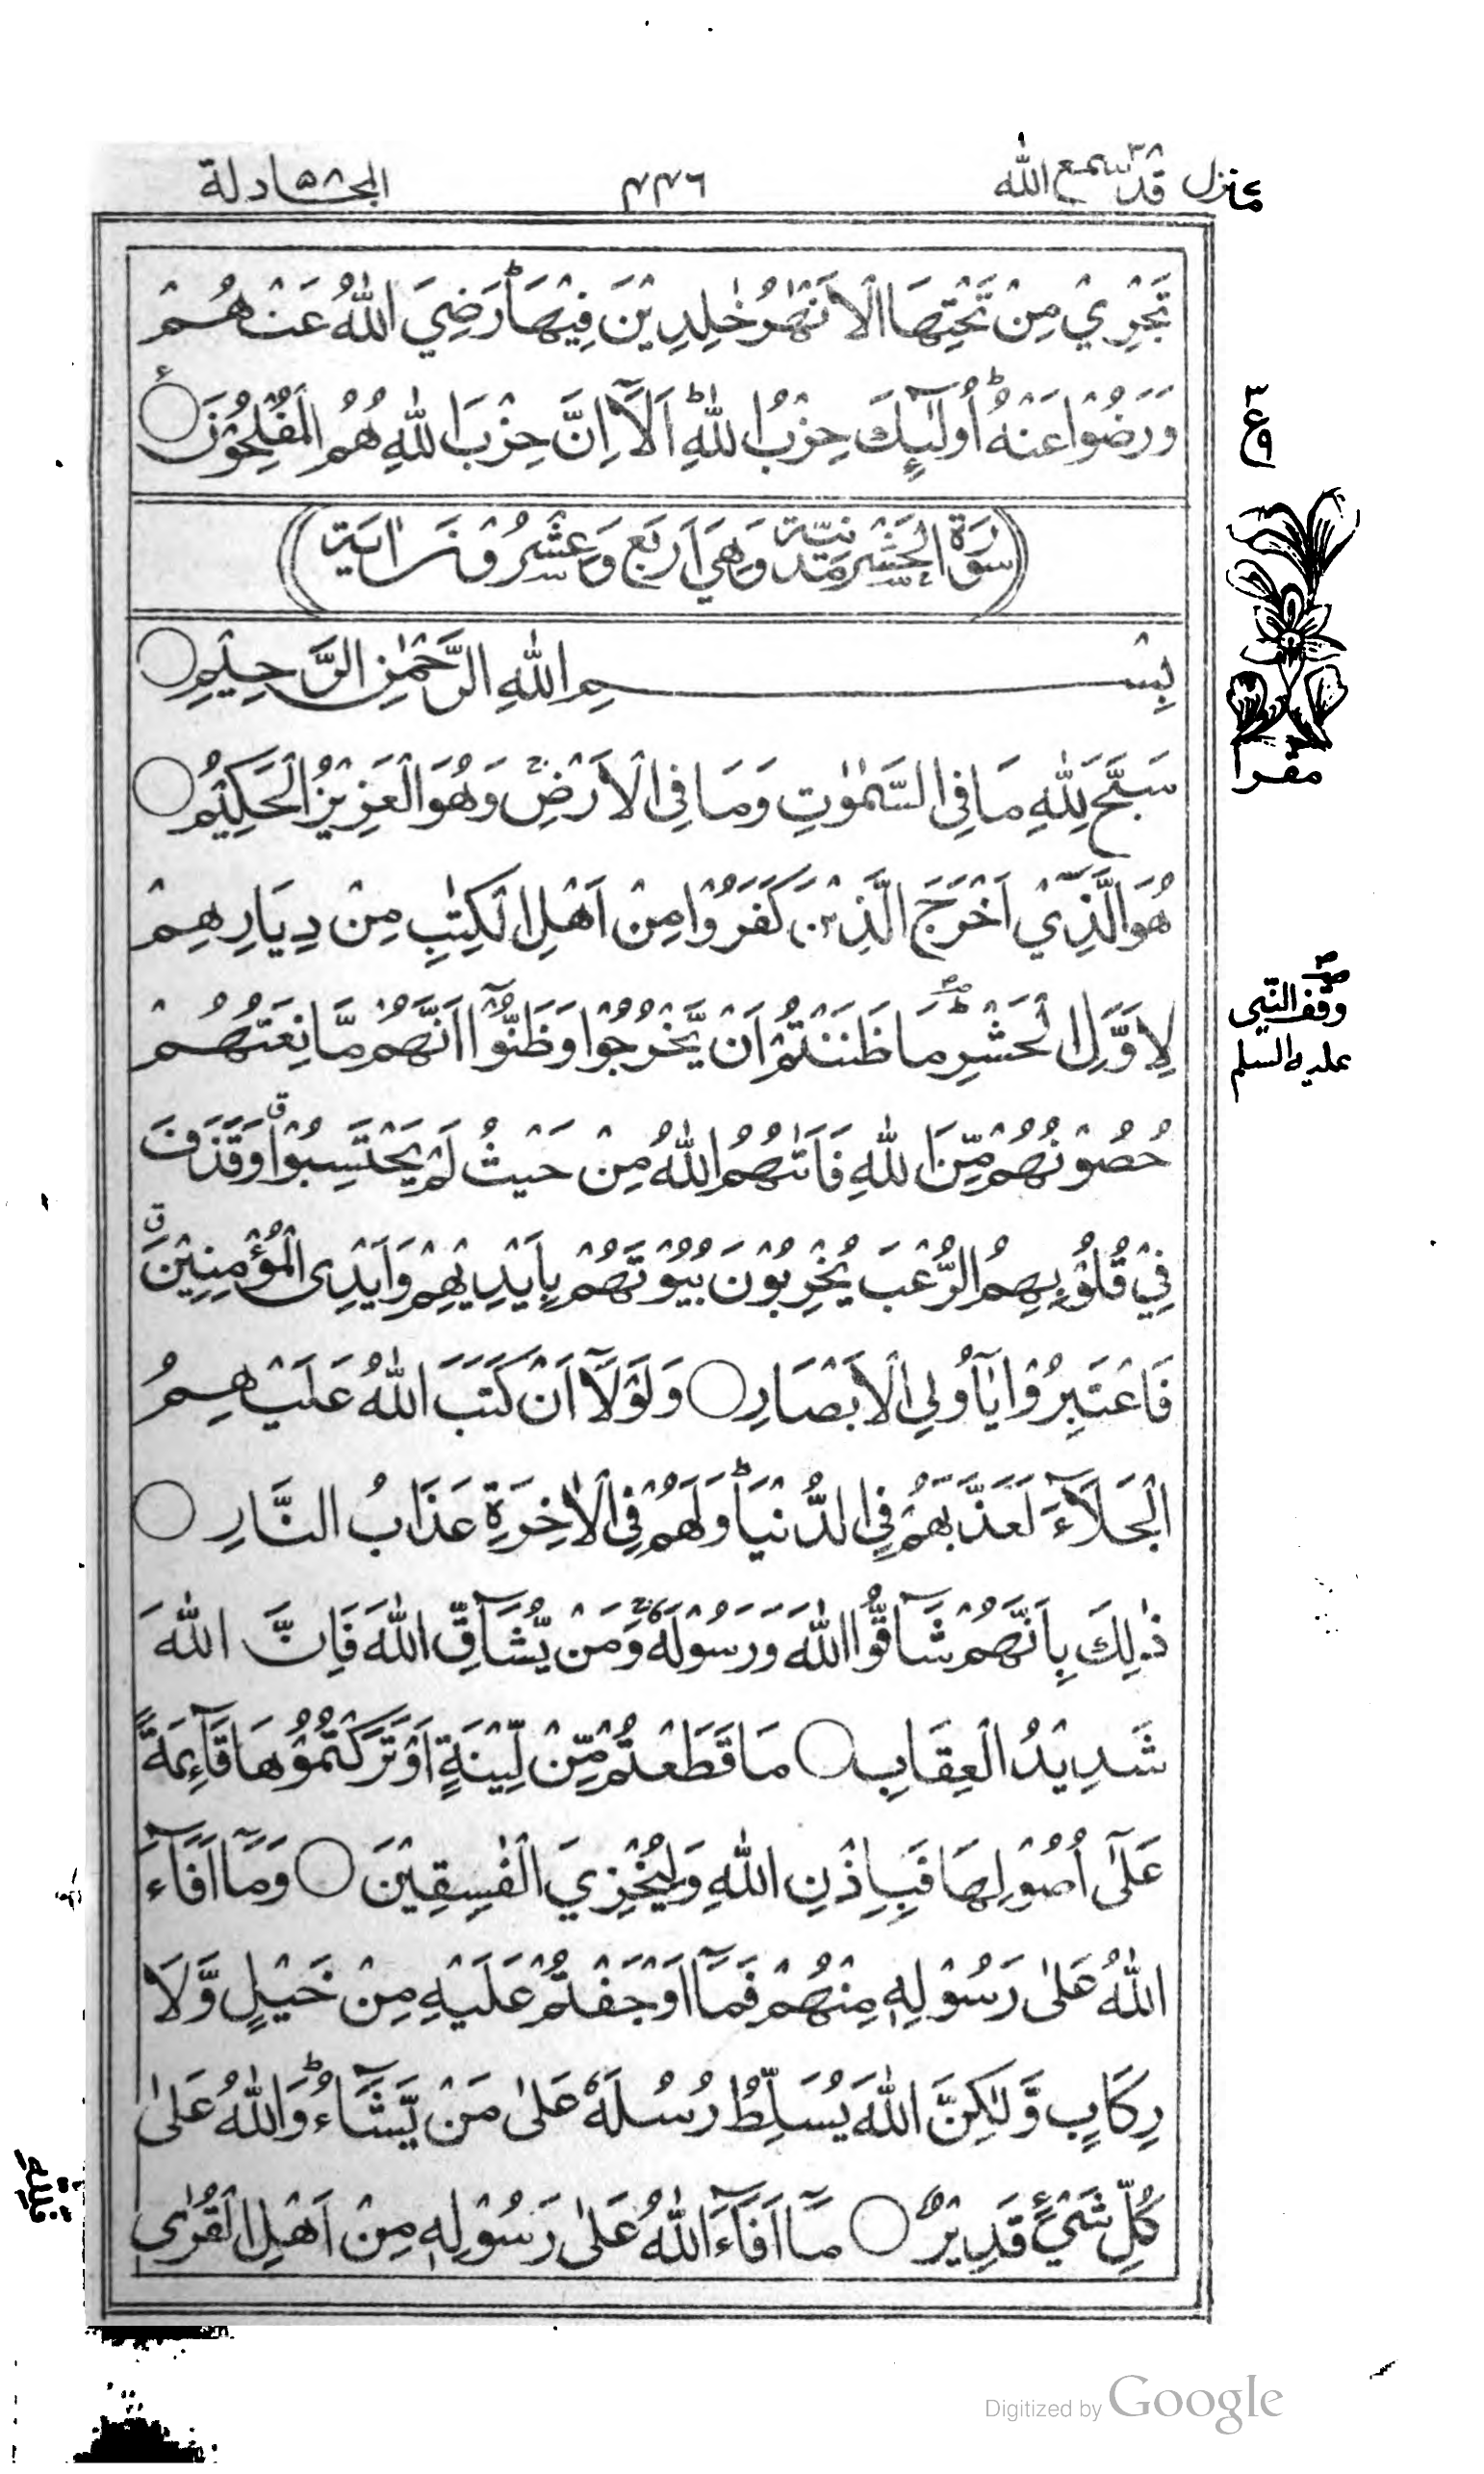 منزل ٧ قد سمع الله ٢٨ ٤٤٦ المجادلة ٥٨
تَجْرِيْ مِنْ تَحْتِهَا الْاَنْهٰرُ خٰلِدِيْنَ فِيْهَا ؕ رَضِيَ اللّٰهُ عَنْهُمْ
وَرَضُوْا عَنْهُ ؕ اُولٰٓئِكَ حِزْبُ اللّٰهِ ؕ اَلَآ اِنَّ حِزْبَ اللّٰهِ هُمُ الْمُفْلِحُوْنَ ○
ع
سُوْرَةُ الْحَشْرِ مَدَنِيَّةٌ وَهِيَ اَرْبَعٌ وَعِشْرُوْنَ اٰيَةً
بِسْمِ اللّٰهِ الرَّحْمٰنِ الرَّحِيْمِ ○
سَبَّحَ لِلّٰهِ مَا فِي السَّمٰوٰتِ وَمَا فِي الْاَرْضِ ۚ وَهُوَ الْعَزِيْزُ الْحَكِيْمُ ○
هُوَ الَّذِيْٓ اَخْرَجَ الَّذِيْنَ كَفَرُوْا مِنْ اَهْلِ الْكِتٰبِ مِنْ دِيَارِهِمْ
لِاَوَّلِ الْحَشْرِ ؕ مَا ظَنَنْتُمْ اَنْ يَّخْرُجُوْا وَظَنُّوْٓا اَنَّهُمْ مَّانِعَتُهُمْ
وقف النبي
عليه السلم
حُصُوْنُهُمْ مِّنَ اللّٰهِ فَاَتٰىهُمُ اللّٰهُ مِنْ حَيْثُ لَمْ يَحْتَسِبُوْا ق وَقَذَفَ
فِيْ قُلُوْبِهِمُ الرُّعْبَ يُخْرِبُوْنَ بُيُوْتَهُمْ بِاَيْدِيْهِمْ وَاَيْدِي الْمُؤْمِنِيْنَ ق
فَاعْتَبِرُوْا يٰٓاُولِي الْاَبْصَارِ ○ وَلَوْلَآ اَنْ كَتَبَ اللّٰهُ عَلَيْهِمُ
الْجَلَآءَ لَعَذَّبَهُمْ فِي الدُّنْيَا ؕ وَلَهُمْ فِي الْاٰخِرَةِ عَذَابُ النَّارِ ○
ذٰلِكَ بِاَنَّهُمْ شَآقُّوا اللّٰهَ وَرَسُوْلَهٗ ۚ وَمَنْ يُّشَآقِّ اللّٰهَ فَاِنَّ اللّٰهَ
شَدِيْدُ الْعِقَابِ ○ مَا قَطَعْتُمْ مِّنْ لِّيْنَةٍ اَوْ تَرَكْتُمُوْهَا قَآئِمَةً
عَلٰٓى اُصُوْلِهَا فَبِاِذْنِ اللّٰهِ وَلِيُخْزِيَ الْفٰسِقِيْنَ ○ وَمَآ اَفَآءَ
اللّٰهُ عَلٰى رَسُوْلِهٖ مِنْهُمْ فَمَآ اَوْجَفْتُمْ عَلَيْهِ مِنْ خَيْلٍ وَّلَا
رِكَابٍ وَّلٰكِنَّ اللّٰهَ يُسَلِّطُ رُسُلَهٗ عَلٰى مَنْ يَّشَآءُ ؕ وَاللّٰهُ عَلٰى
كُلِّ شَيْءٍ قَدِيْرٌ ○ مَآ اَفَآءَ اللّٰهُ عَلٰى رَسُوْلِهٖ مِنْ اَهْلِ الْقُرٰى
Digitized by Google